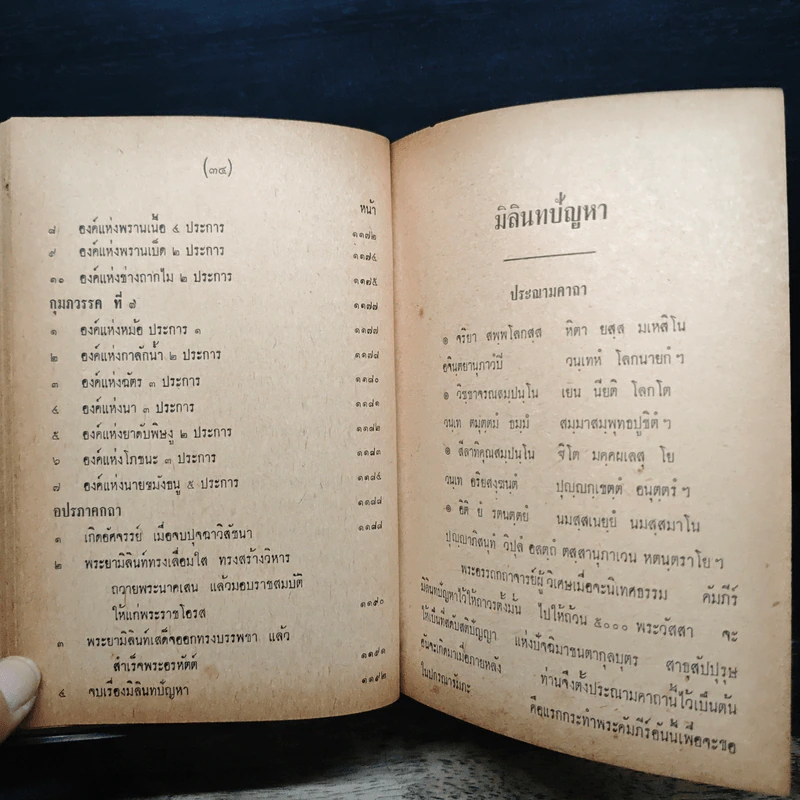 (๓๔)
หน้า
๘ องค์แห่งพรานเนื้อ ๔ ประการ ๑๑๗๒
๙ องค์แห่งพรานเบ็ด ๒ ประการ ๑๑๗๔
๑๑ องค์แห่งช่างถากไม้ ๒ ประการ ๑๑๗๕
กุมภวรรค ที่ ๗ ๑๑๗๗
๑ องค์แห่งหม้อ ประการ ๑ ๑๑๗๗
๒ องค์แห่งกาลักน้ำ ๒ ประการ ๑๑๗๘
๓ องค์แห่งฉัตร ๓ ประการ ๑๑๘๐
๔ องค์แห่งนา ๓ ประการ ๑๑๘๑
๕ องค์แห่งยาดับพิษงู ๒ ประการ ๑๑๘๒
๖ องค์แห่งโภชนะ ๓ ประการ ๑๑๘๓
๗ องค์แห่งนายขมังธนู ๕ ประการ ๑๑๘๔
อปราภาคกถา ๑๑๘๘
๑ เกิดอัศจรรย์ เมื่อจบปุจฉาวิสัชนา ๑๑๘๘
๒ พระยามิลินท์ทรงเลื่อมใส ทรงสร้างวิหาร
ถวายพระนาคเสน แล้วมอบราชสมบัติ
ให้แก่พระราชโอรส ๑๑๙๐
๓ พระยามิลินท์เสด็จออกทรงบรรพชา แล้ว
สำเร็จพระอรหัตต์ ๑๑๙๑
๔ จบเรื่องมิลินทปัญหา ๑๑๙๒
มิลินทปัญหา
ประณามคาถา
๑ จริยา สพฺพโลกสฺส หิตา ยสฺส มเหสิโน
อจินฺตยานุภาวํปิ วนฺเทหํ โลกนายกํ ฯ
๑ วิชฺชาจรณสมฺปนฺโน เยน นียติ โลกโต
วนฺเท ตมุตฺตมํ ธมฺมํ สมฺมาสมฺพุทธปูชิตํ ฯ
๑ สีลาทิคุณสมฺปนฺโน ฐิโต มคฺคผเลสุ โย
วนเท อริยสงฺฆนฺตํ ปุญฺญกฺเขตฺตํ อนุตฺตรํ ฯ
๑ อิติ ยํ รตนตฺตยํ นมสฺสเนยฺยํ นมสฺสมาโน
ปุญฺญาภิสนฺทํ วิปุลํ อลตฺถํ ตสฺสานุภาเวน หตนฺตราโย ฯ
พระอรรถกถาจารย์ผู้วิเศษเมื่อจะนิเทศธรรม คัมภีร์
มิลินทปัญหาไว้ให้ถาวรตั้งมั่น ไปให้ถ้วน ๕๐๐๐ พระวัสสา จะ
ให้เป็นที่สดับสติปัญญา แห่งปัจฉิมาชนตากุลบุตร สาธุสัปปุรุษ
อันจะเกิดมาเมื่อภายหลัง ท่านจึงตั้งประณามคาถานี้ไว้เป็นต้น
ในปกรณารัมภะ คือแรกกระทำพระคัมภีร์อันนี้เพื่อจะขอ